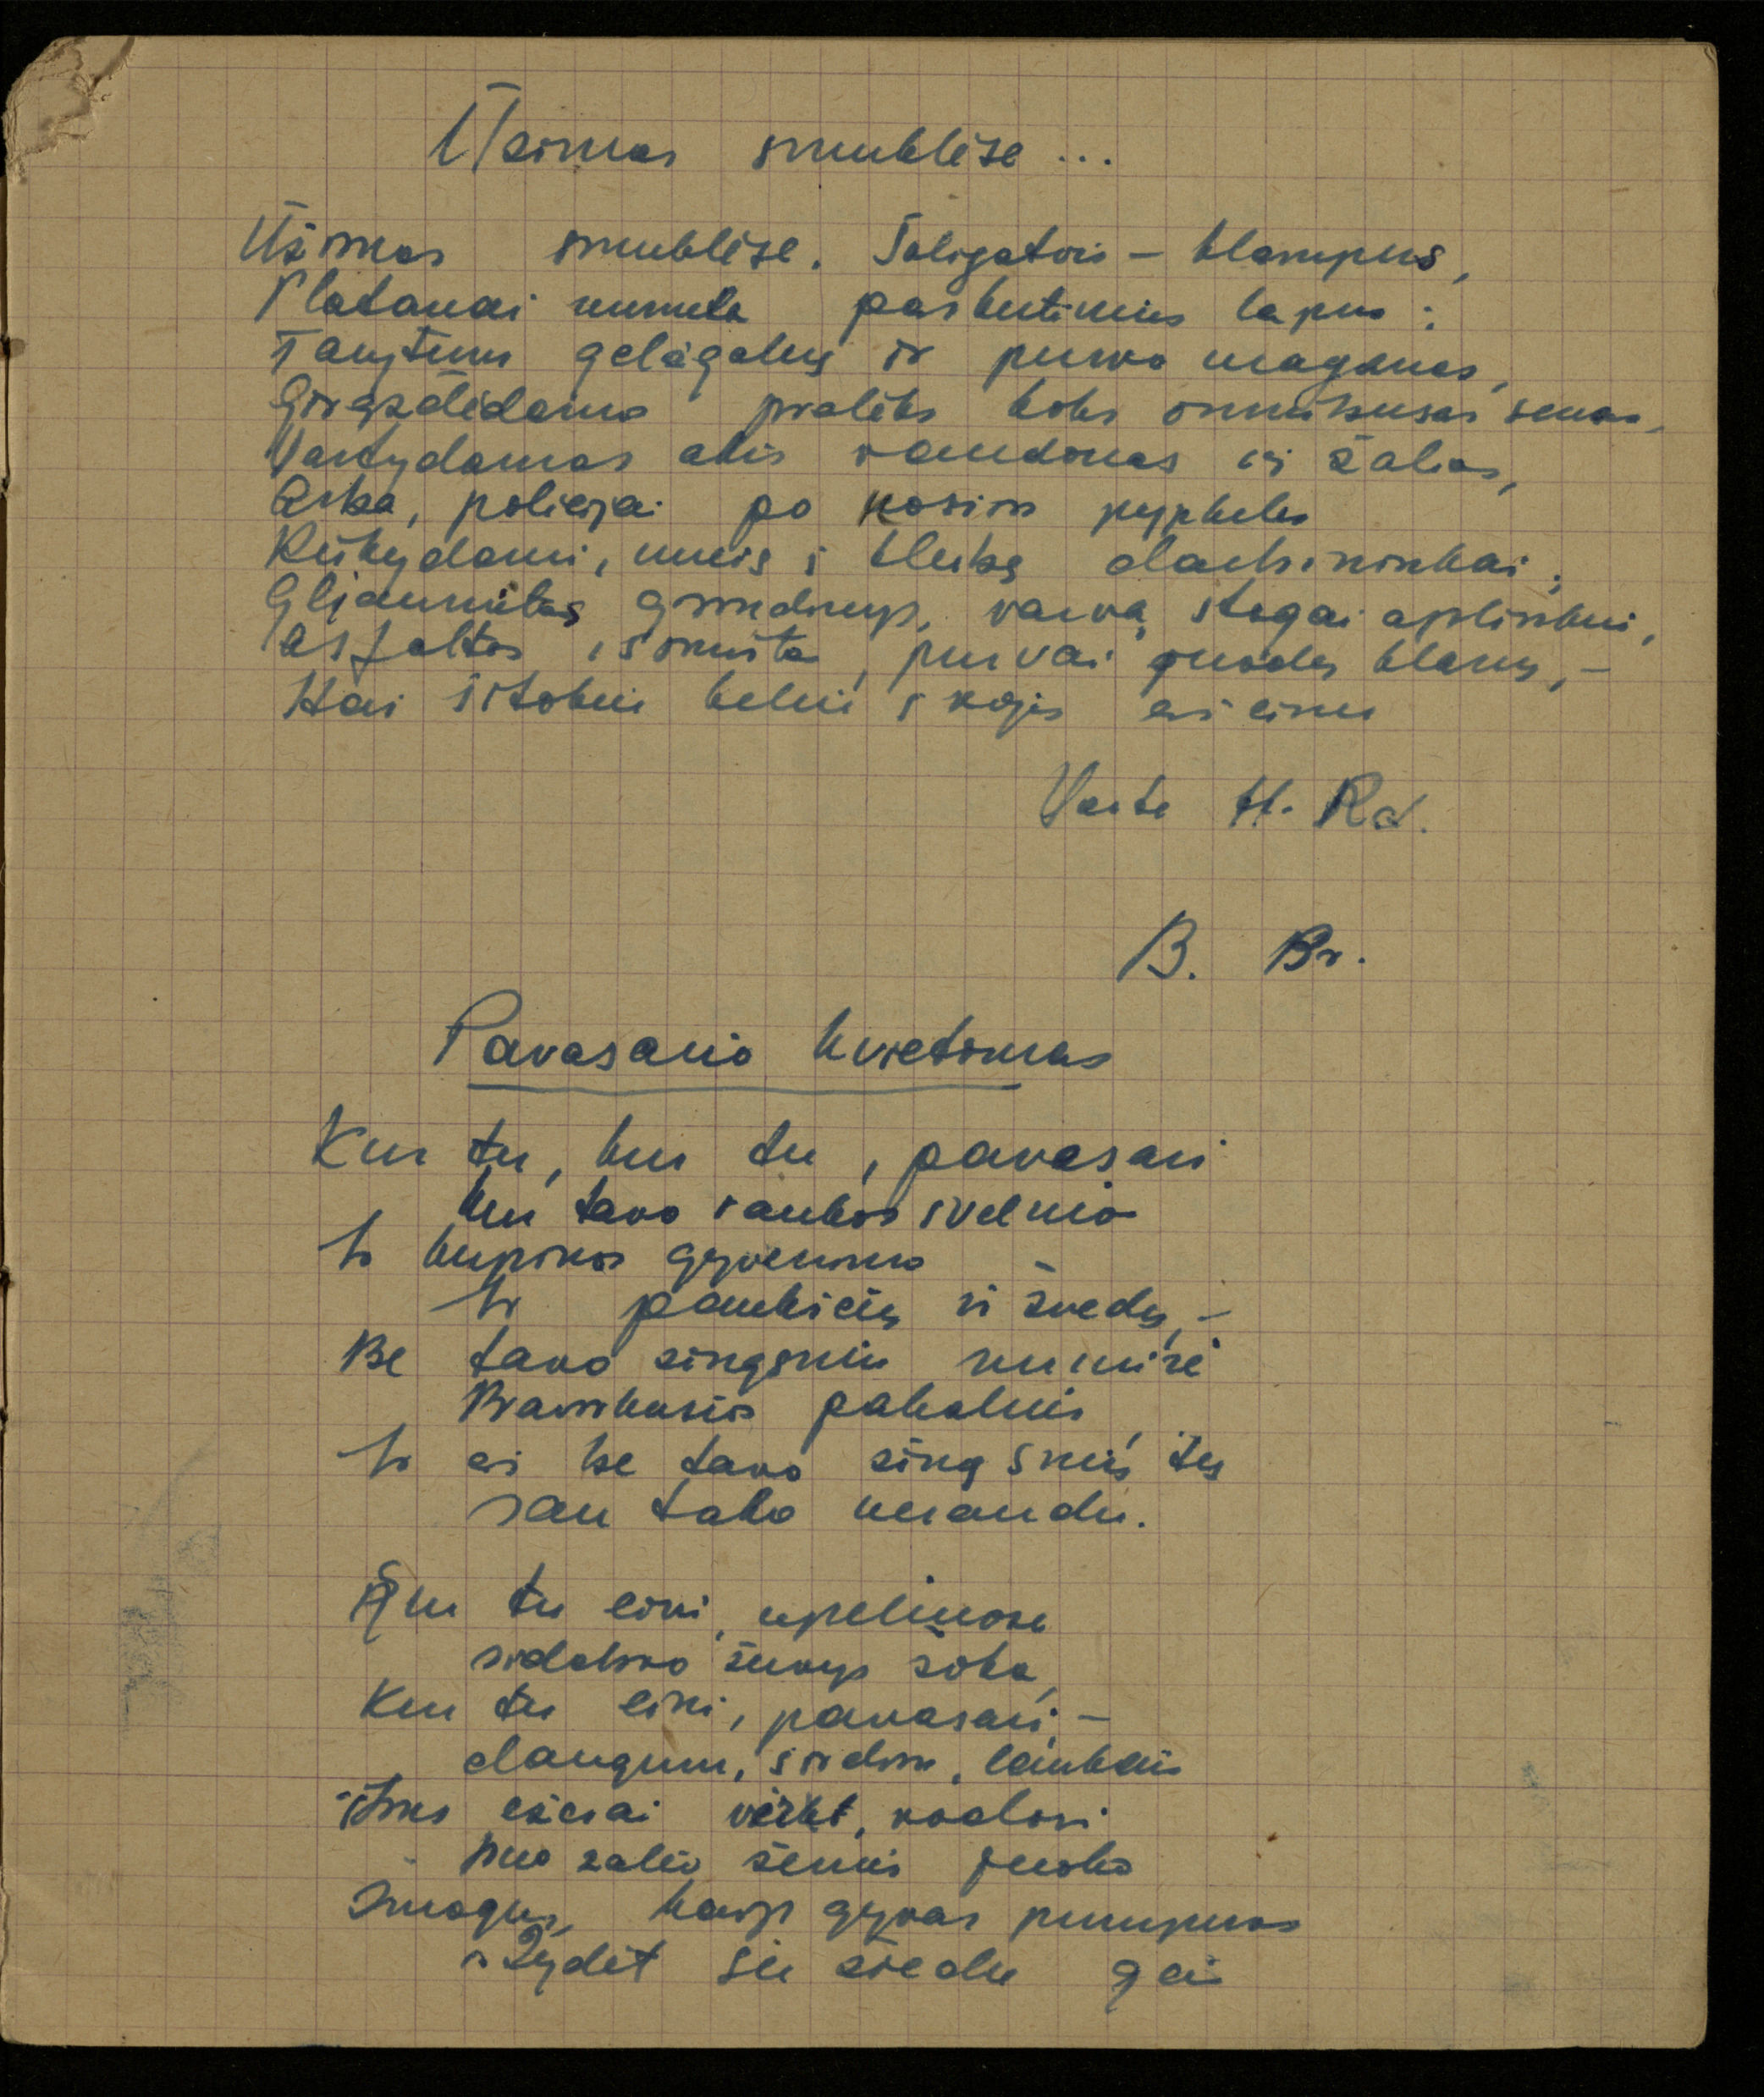 Ūžimas smuklėse ...
Ūžimas smuklėse. Šaligatvis – klampus,
Platanai numeta paskutinius lapus;
Tarytum geležgalių ir purvo maganas,
Girgždėdama pralėks koks omnibusas senas,
Vartydamas akis raudonas ir žalias,
Eiba, policijai po nosim pypkeles
Rūkydami, nueis į klubą darbininkai;
Gliaumėtas grindinys, varva stogai aplinkui,
Asfaltas išmuštas, purvai juodų klanų, –
Štai šitokiu keliu į rojų aš einu
Vertė H. Rd.
B. Br.
Pavasario kvietimas
Kur tu, kur tu, pavasari
kur tavo rankos švelnios
Ir kupinos gyvenimo
Ir paukščių ir žiedų, –
Be tavo žingsnių numirė
Brazinkusios pakalnės
Ir aš be tavo žingsnių tų
sau tako nerandu.
Kur tu eini, upeliuose
sidabro žuvys šoka,
Kur tu eini, pavasari, –
dangum, širdim, laukais
ims ežerai virkt, vadovi
nuo žalio žemės juoko
Žmogus, kaip gyvas pumpuras
pražydėt šiuo žiedu gai